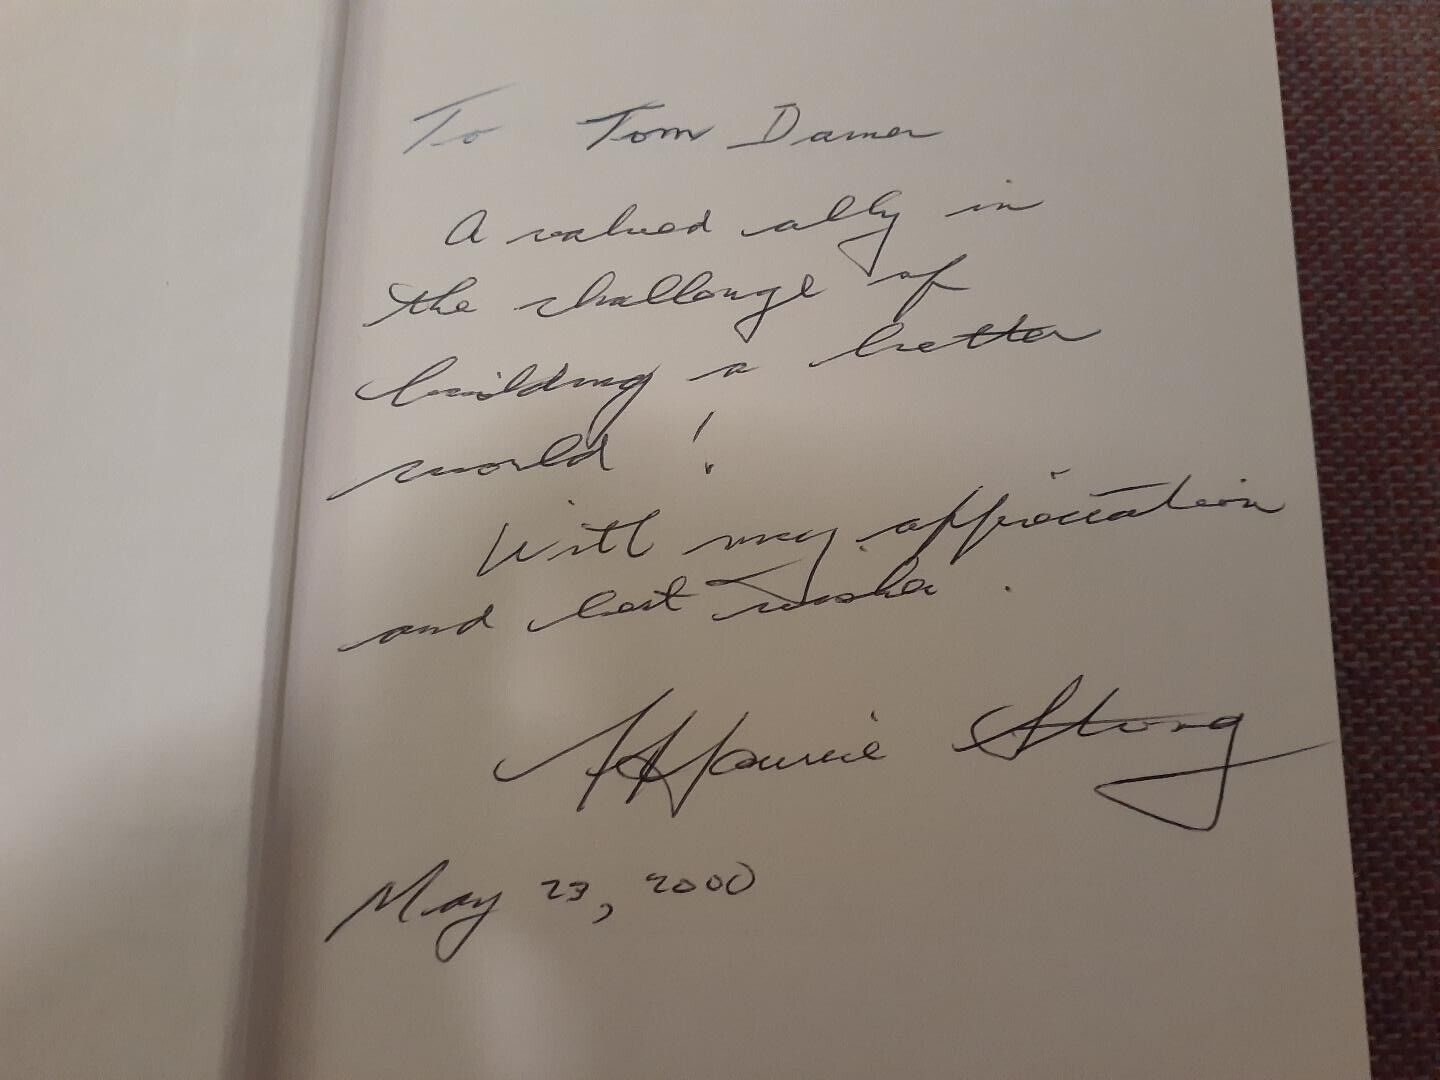 To Tom Damer
A valued ally in
the challenge of
building a better
world!
With my appreciation
and best wishes.
Maurice Strong
May 23, 2000